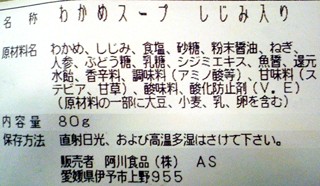 名称 わかめスープ しじみ入り
原材料名 わかめ、しじみ、食塩、砂糖、粉末醤油、ねぎ、
人参、ぶどう糖、乳糖、シジミエキス、魚醤、還元
水飴、香辛料、調味料(アミノ酸等)、甘味料(ス
テビア、甘草)、酸味料、酸化防止剤(V.E)
(原材料の一部に大豆、小麦、乳、卵を含む)
内容量 80g
保存方法 直射日光、および高温多湿はさけて下さい。
販売者 阿川食品(株) AS
愛媛県伊予市上野955